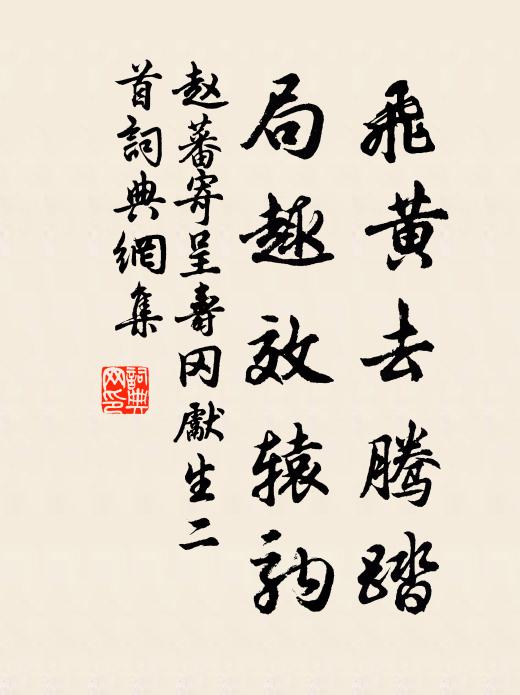 飛黄去騰踏
局趣效辕駒
赵蕃寄呈壽冈獻生二
首詞典網集
詞典網印